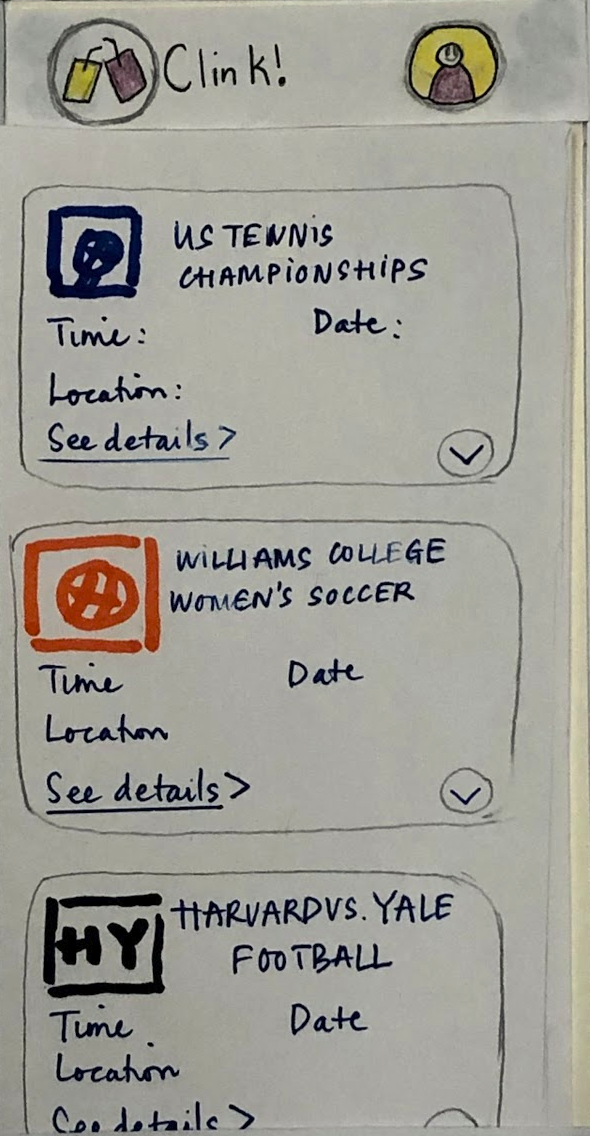 Clink!
US TENNIS
CHAMPIONSHIPS
Time: Date:
Location:
See details >
WILLIAMS COLLEGE
WOMEN'S SOCCER
Time Date
Location
See details >
HY
HARVARD VS. YALE
FOOTBALL
Time Date
Location
See details >